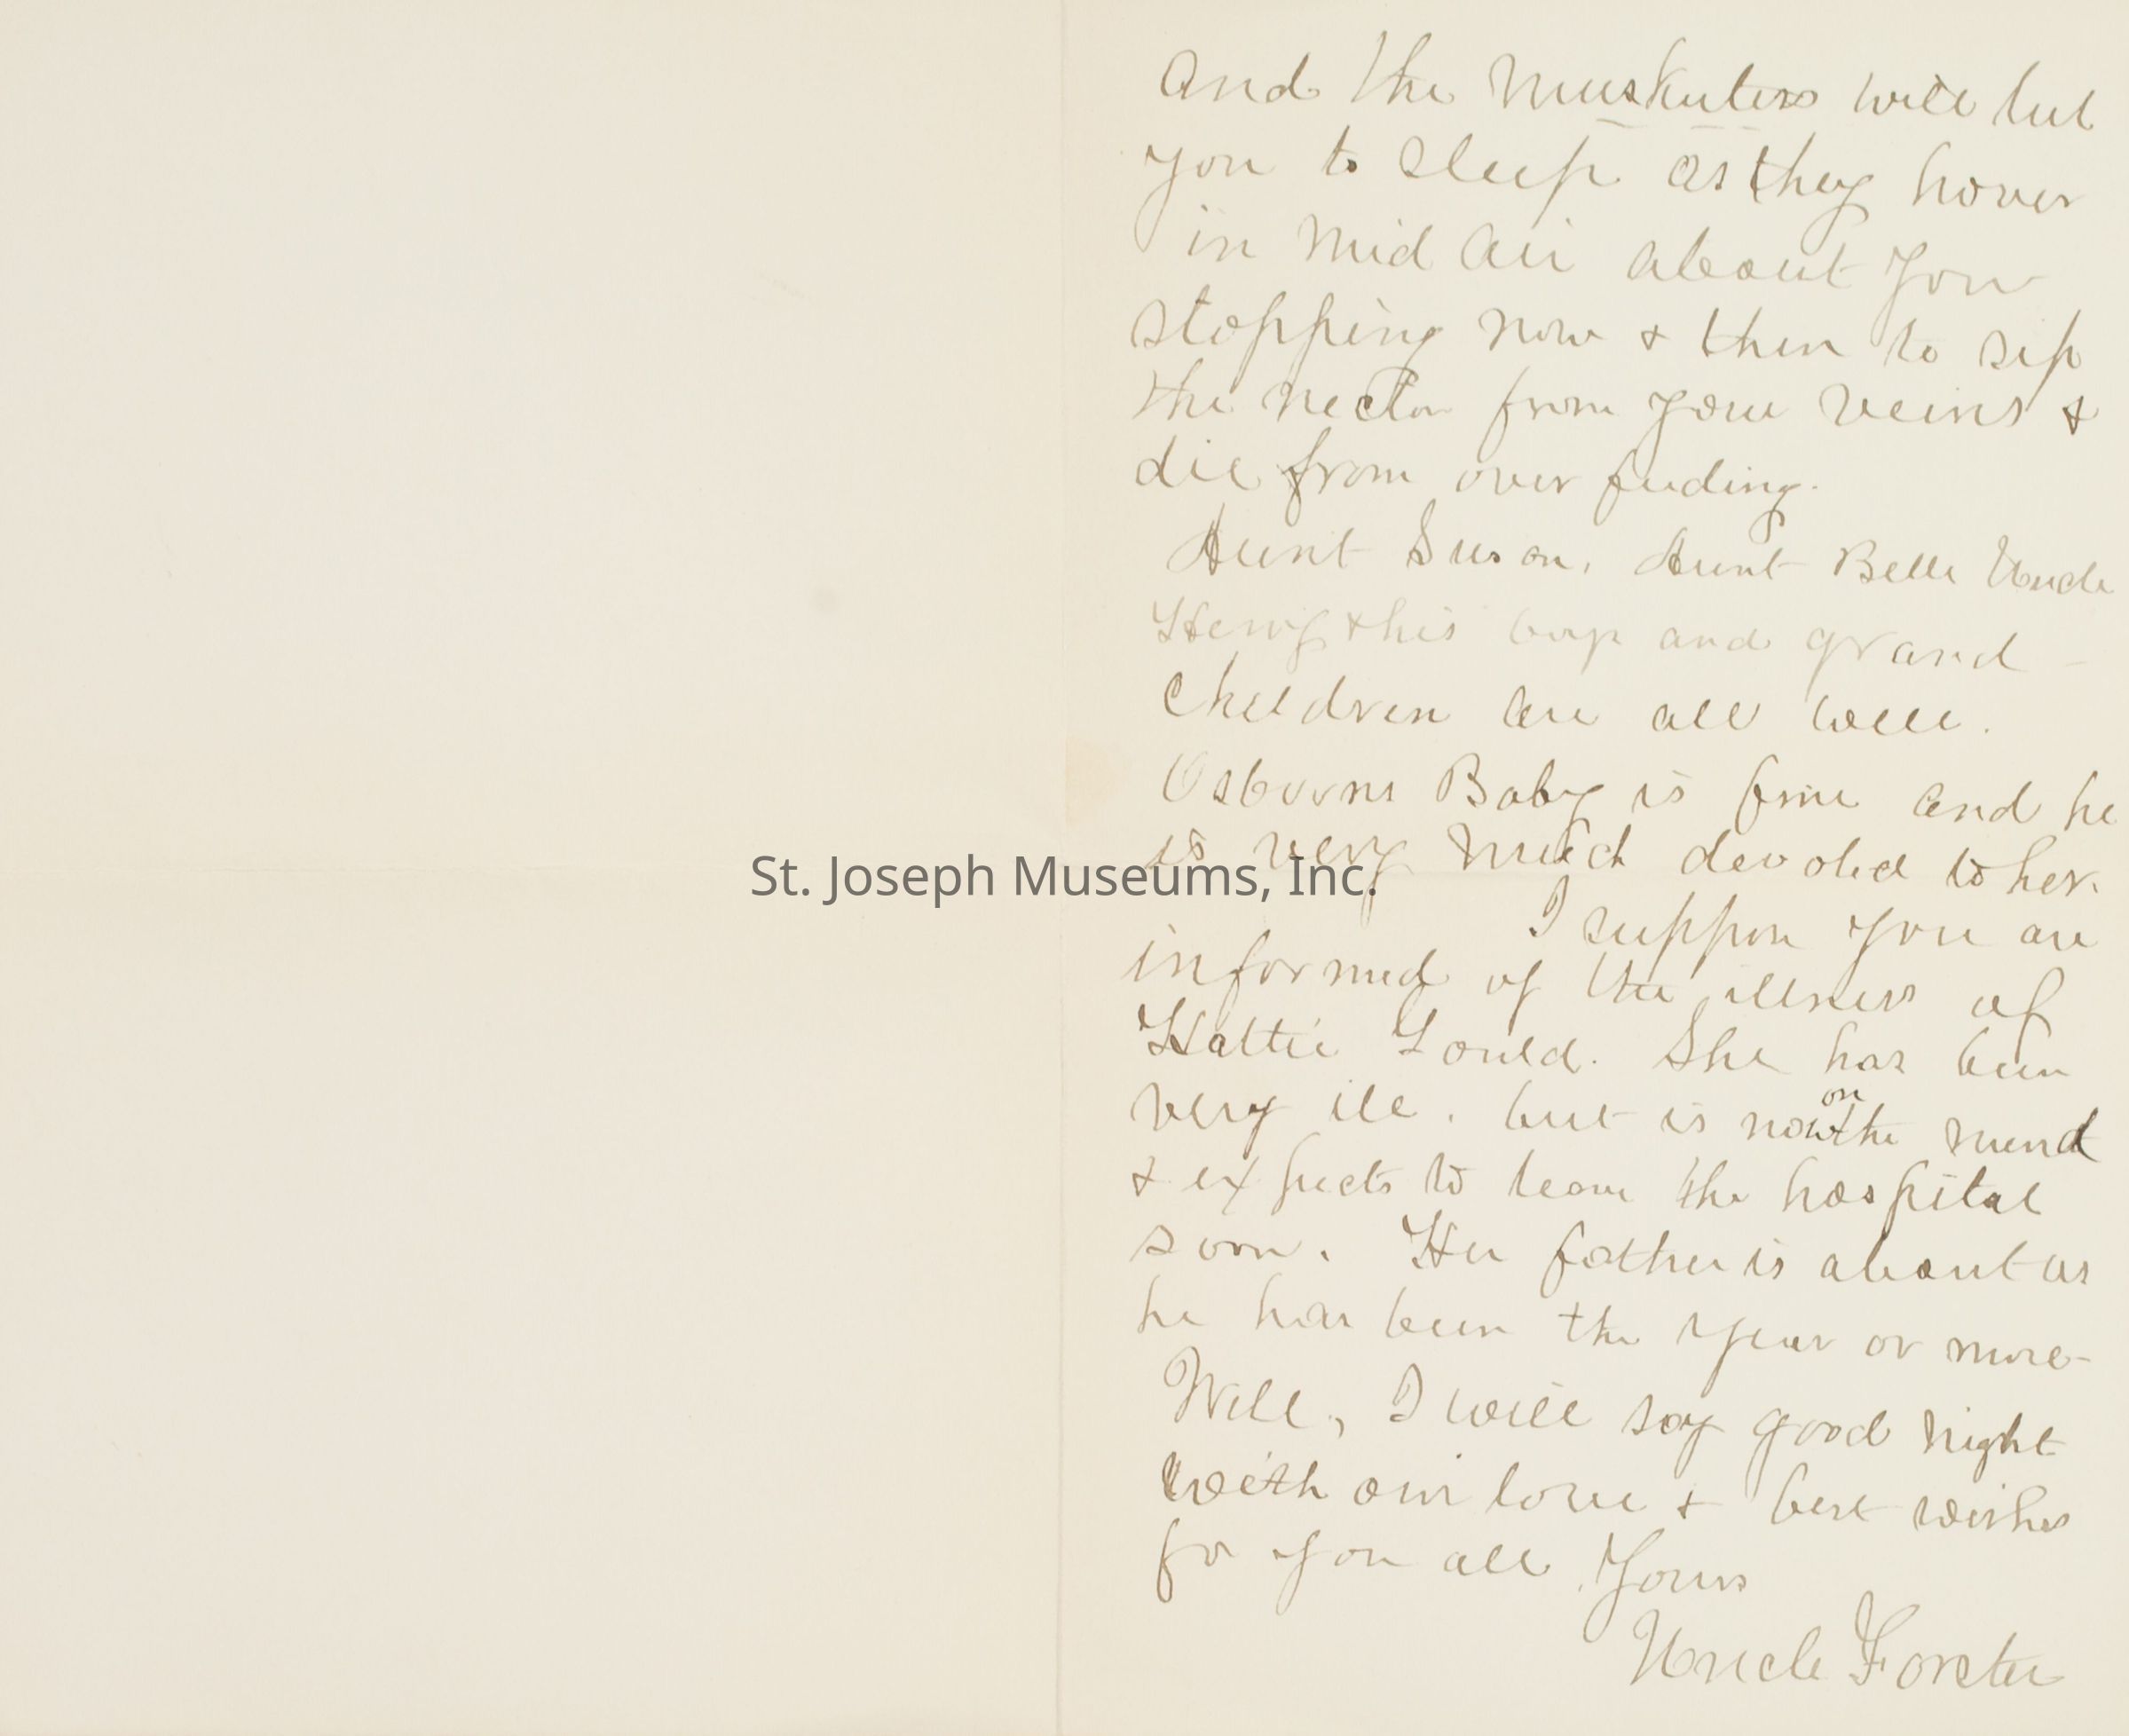 and the muskuters will lul
you to sleep as they hover
in mid air about you
stopping now & then to sip
the nectar from your veins &
die from over feeding.
Aunt Susan, Aunt Belle Uncle
Henry & his boys and grand-
children are all well.
Osborns Baby is fine and he
is very much devoted to her.
St. Joseph Museums, Inc.
I suppose you are
informed of the illness of
Hattie Gould. She has been
very ill. but is now on the mend
& expects to leave the hospital
soon. Her father is about as
he has been the year or more-
Well, I will say good night
with our love & best wishes
for you all. Yours
Uncle